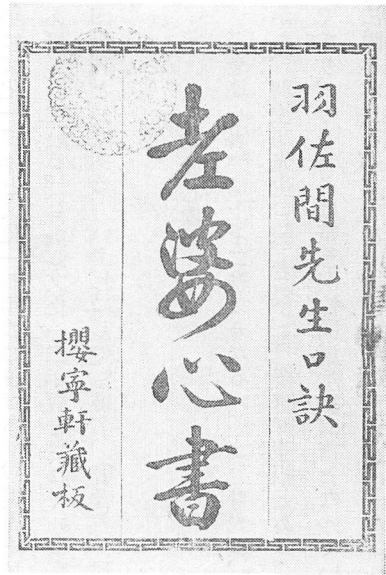 羽佐間先生口訣
老婆心書
攖寧軒藏板